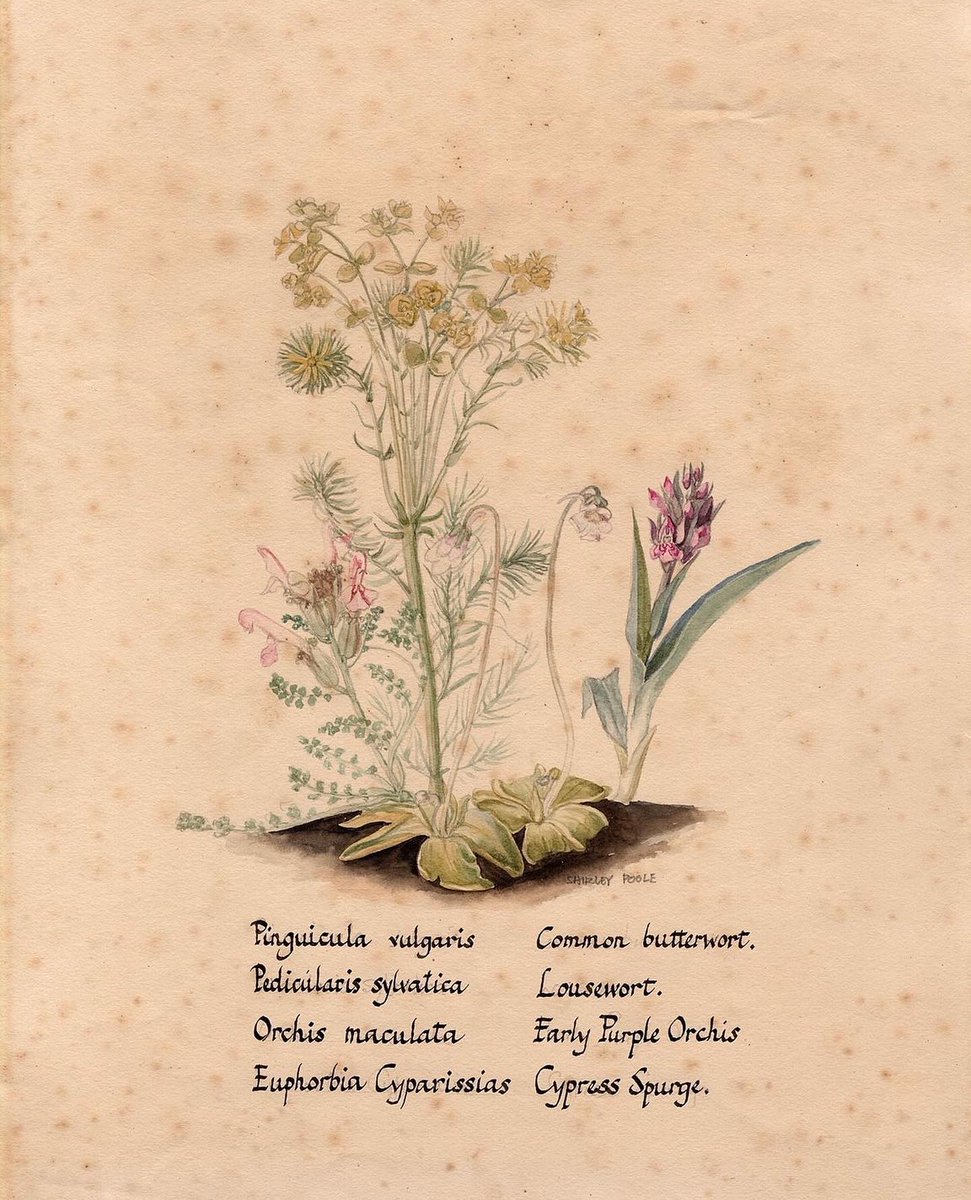 SHIRLEY POOLE
Pinguicula vulgaris Common butterwort.
Pedicularis sylvatica Lousewort.
Orchis maculata Early Purple Orchis
Euphorbia Cyparissias Cypress Spurge.